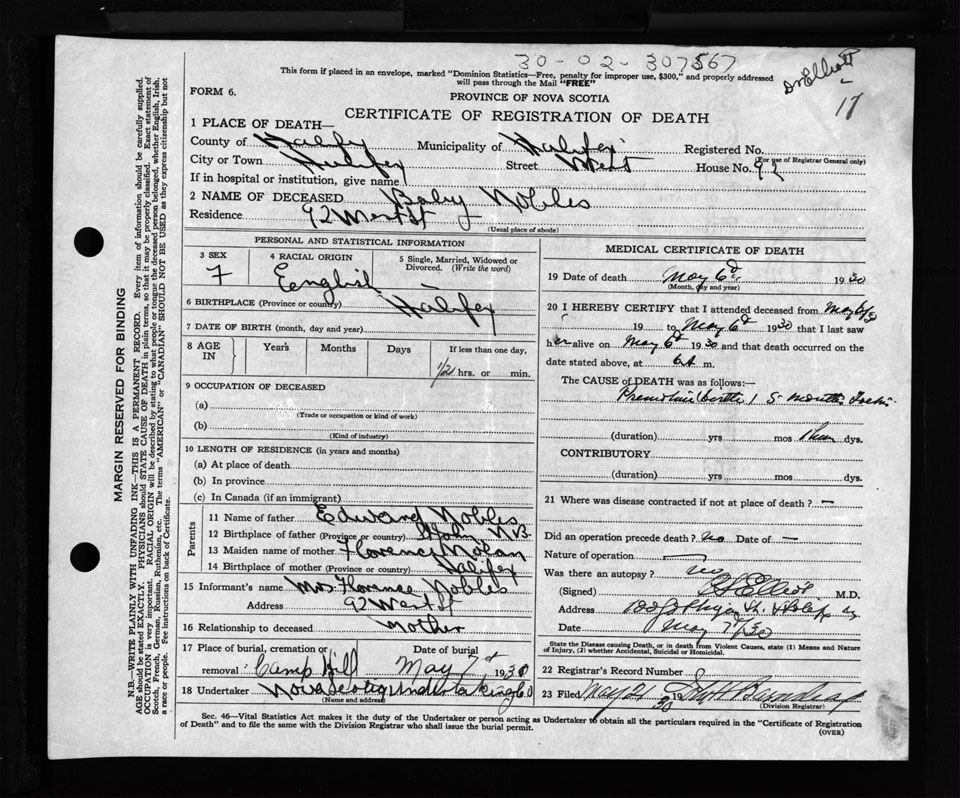 30-02-307567
Dr Elliott
17
This form if placed in an envelope, marked "Dominion Statistics—Free, penalty for improper use, $300," and properly addressed
will pass through the Mail "FREE"
FORM 6.
PROVINCE OF NOVA SCOTIA
CERTIFICATE OF REGISTRATION OF DEATH
1 PLACE OF DEATH—
County of Halifax Municipality of Halifax Registered No.
(For use of Registrar General only)
City or Town Halifax Street West House No. 92
If in hospital or institution, give name
2 NAME OF DECEASED Baby Nobles
Residence 92 West St
(Usual place of abode)
PERSONAL AND STATISTICAL INFORMATION
3 SEX 4 RACIAL ORIGIN 5 Single, Married, Widowed or
Divorced. (Write the word)
F English —
6 BIRTHPLACE (Province or country) Halifax
7 DATE OF BIRTH (month, day and year)
8 AGE IN Years Months Days If less than one day,
1/2 hrs. or min.
9 OCCUPATION OF DECEASED
(a)
(Trade or occupation or kind of work)
(b)
(Kind of industry)
10 LENGTH OF RESIDENCE (in years and months)
(a) At place of death
(b) In province
(c) In Canada (if an immigrant)
Parents
11 Name of father Edward Nobles
12 Birthplace of father (Province or country) N.B.
13 Maiden name of mother Florence Nolan
14 Birthplace of mother (Province or country) Halifax
15 Informant's name Mrs Florence Nobles
Address 92 West St
16 Relationship to deceased Mother
17 Place of burial, cremation or Date of burial
removal: Camp Hill May 7th 1930
18 Undertaker Nova Scotia Undertaking Co
(Name and address)
MEDICAL CERTIFICATE OF DEATH
19 Date of death May 6th 1930
(Month, day and year)
20 I HEREBY CERTIFY that I attended deceased from May 6/30
19 to May 6th 1930 that I last saw
her alive on May 6th 1930 and that death occurred on the
date stated above, at 6A m.
The CAUSE of DEATH was as follows:—
Premature birth 5 months
(duration) yrs mos dys.
CONTRIBUTORY
(duration) yrs mos dys.
21 Where was disease contracted if not at place of death? —
Did an operation precede death? no Date of —
Nature of operation —
Was there an autopsy? no
(Signed) Elliott M.D.
Address
Date May 7th/30
State the Disease causing Death, or in death from Violent Causes, state (1) Means and Nature
of Injury, (2) whether Accidental, Suicidal or Homicidal.
22 Registrar's Record Number
23 Filed May 21 1930
(Division Registrar)
Sec. 46—Vital Statistics Act makes it the duty of the Undertaker or person acting as Undertaker to obtain all the particulars required in the "Certificate of Registration
of Death" and to file the same with the Division Registrar who shall issue the burial permit.
(OVER)
MARGIN RESERVED FOR BINDING
N.B.—WRITE PLAINLY WITH UNFADING INK—THIS IS A PERMANENT RECORD. Every item of information should be carefully supplied.
AGE should be stated EXACTLY. PHYSICIANS should STATE CAUSE OF DEATH in plain terms, so that it may be properly classified. Exact statement of
OCCUPATION is very important. RACIAL ORIGIN will be described by stating to what people or tongue the deceased person belonged, whether English, Irish,
Scotch, French, German, Russian, Ruthenian, etc. The terms "AMERICAN" or "CANADIAN" SHOULD NOT BE USED as they express citizenship but not
a race or people. See instructions on back of Certificate.